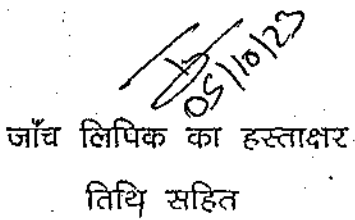 05/10/23
जाँच लिपिक का हस्ताक्षर
तिथि सहित